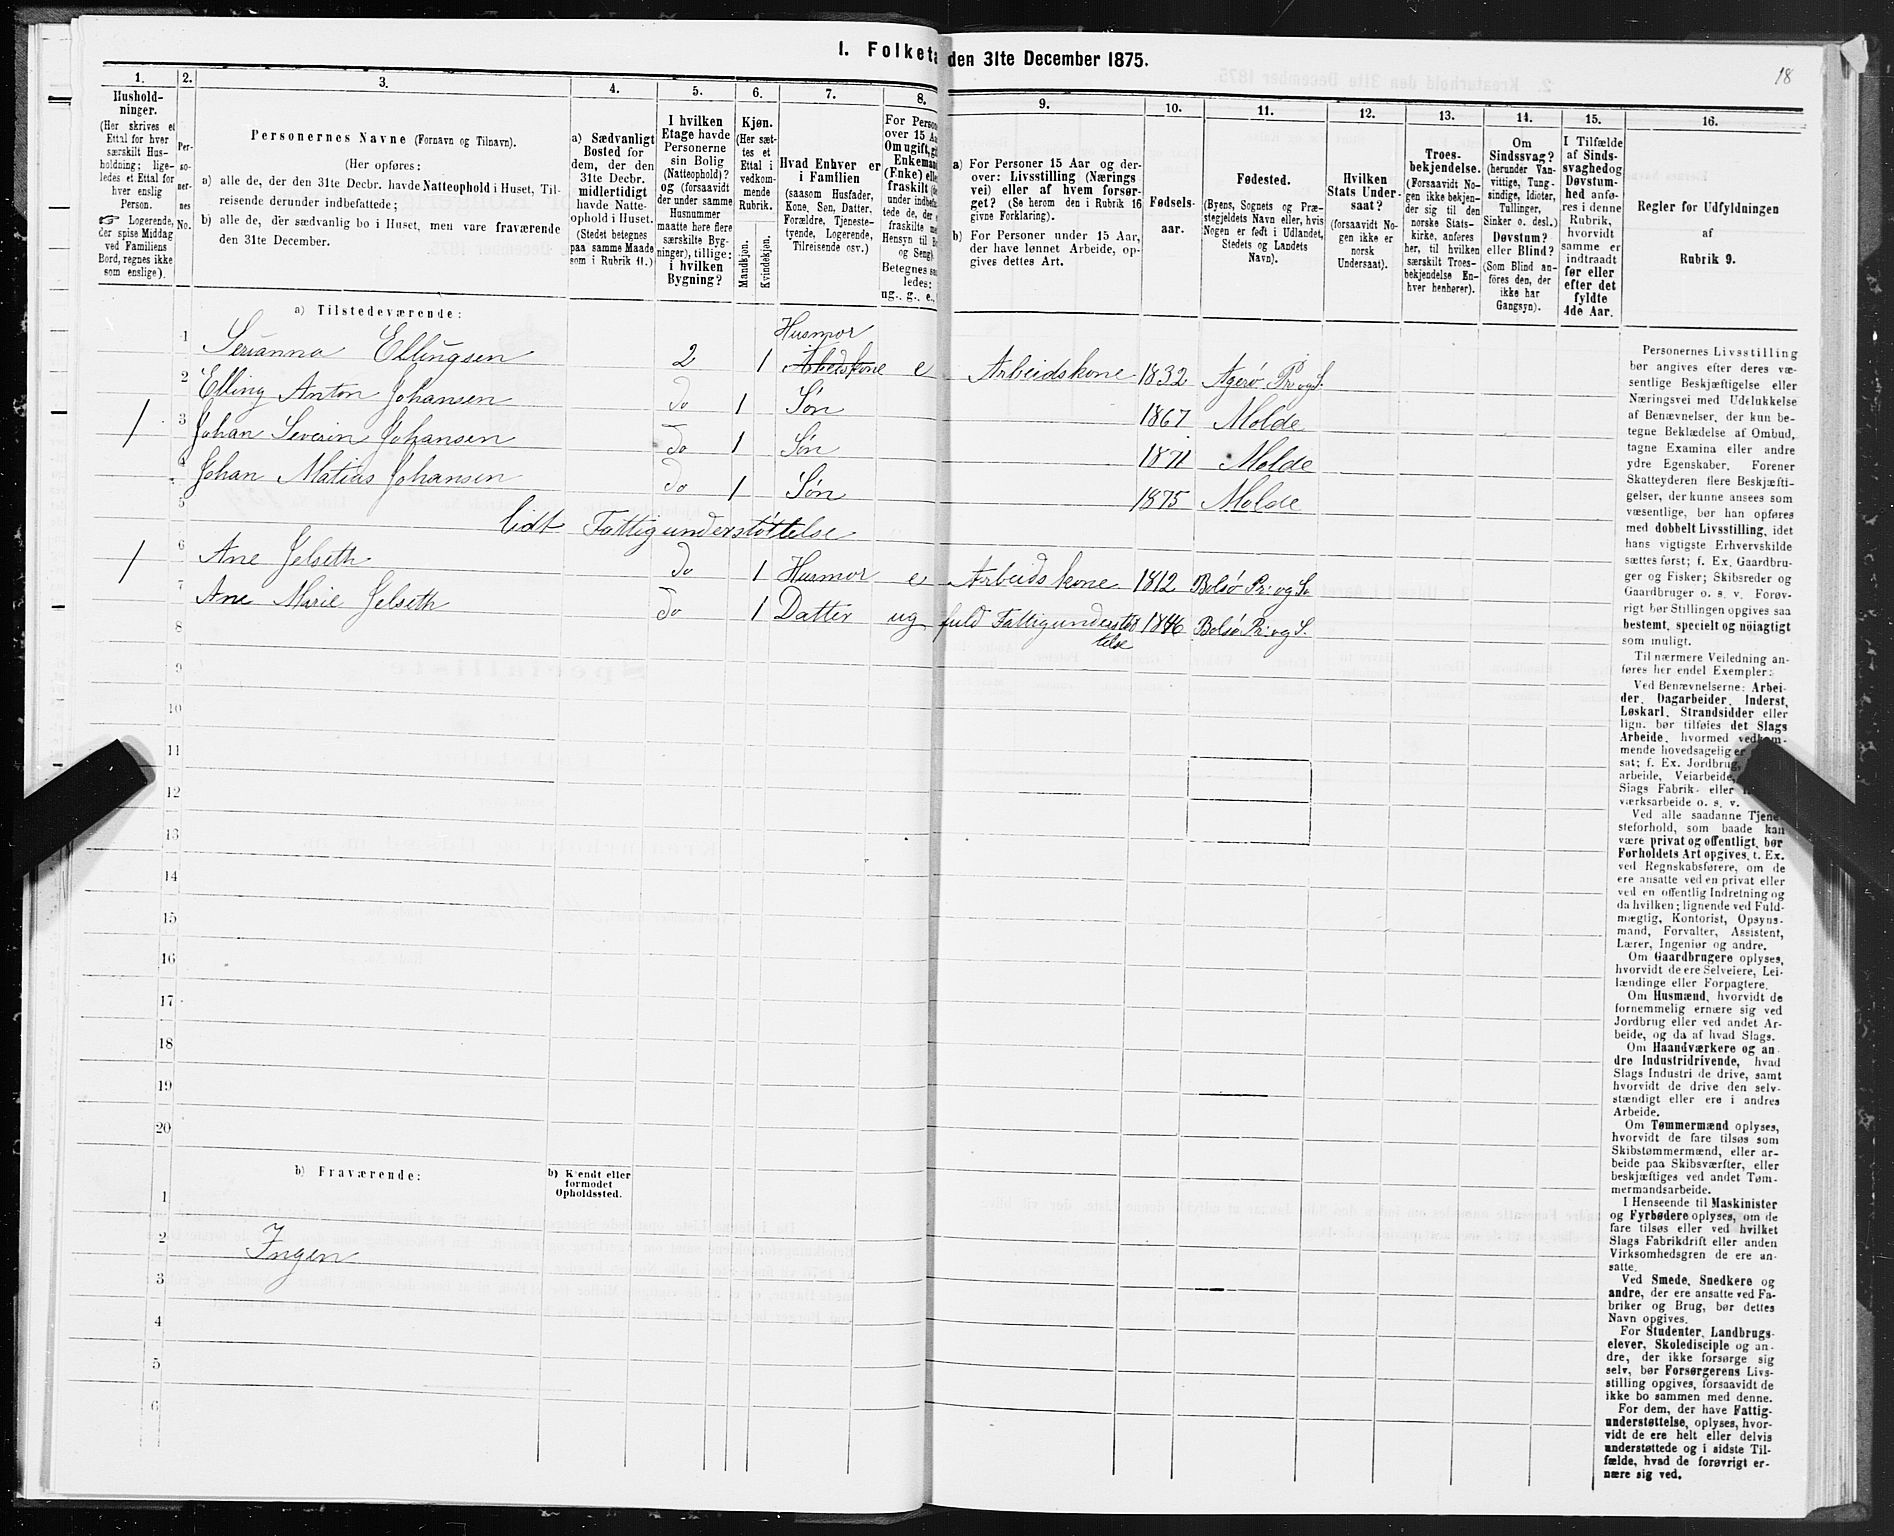 1. Folketæ
den 31te December 1875.
18
1.
2.
3.
4.
5.
6.
7.
8.
9.
10.
11.
12.
13.
14.
15.
16.
Hushold-
ninger.
(Her skrives et
Ettal for hver
særskilt Hus-
holdning; lige-
ledes et Ettal for
hver enslig
Person.
☞ Logerende,
der spise Middag
ved Familiens
Bord, regnes ikke
som enslige).
Per-
so-
ner-
nes
No.
Personernes Navne (Fornavn og Tilnavn).
(Her opføres:
a) alle de, der den 31te Decbr. havde Natteophold i Huset, Til-
reisende derunder indbefattede;
b) alle de, der sædvanlig bo i Huset, men vare fraværende
den 31te December.
a) Sædvanligt
Bosted for
dem, der den
31te Decbr.
midlertidigt
havde Natte-
ophold i Huset.
(Stedet betegnes
paa samme Maade
som i Rubrik 11.)
I hvilken
Etage havde
Personerne
sin Bolig
(Natteophold)?
og (forsaavidt
der under samme
Husnummer
maatte here flere
særskilte Byg-
ninger), tillige:
i hvilken
Bygning?
Kjøn.
(Her sæt-
tes et
Ettal i
vedkom-
mende
Rubrik.
Mandkjøn.
Kvindekjøn.
Hvad Enhver er
i Familien
(saasom Husfader,
Kone, Søn, Datter,
Forældre, Tjeneste-
tyende, Logerende,
Tilreisende osv.)
For Person
over 15 Aa
Om ugift, gi
Enkemand
(Enke) elle
fraskilt (de
under indbefat
tede de, der e
fraskilte me
Hensyn til Bo
og Seng).
Betegnes saa
ledes:
ug., g., e.,
a) For Personer 15 Aar og der-
over: Livsstilling (Nærings
vei) eller af hvem forsør-
get? (Se herom den i Rubrik 16
givne Forklaring).
b) For Personer under 15 Aar,
der have lønnet Arbeide, op-
gives dettes Art.
Fødsels-
aar.
Fødested.
(Byens, Sognets og Præ-
stegjeldets Navn eller, hvis
Nogen er født i Udlandet,
Stedets og Landets
Navn).
Hvilken
Stats Under-
saat?
(forsaavidt No-
gen ikke er
norsk
Undersaat).
Troes-
bekjendelse.
(Forsaavidt No-
gen ikke bekjen-
der sig til den
norske Stats-
kirke, anføres
her, til hvilken
særskilt Troes-
bekjendelse En-
hver henhører).
Om
Sindssvag?
(herunder Van-
vittige, Tung-
sindige, Idioter,
Tullinger,
Sinker o. desl.)
Døvstum?
eller Blind?
(Som Blind an-
føres den, der
ikke har
Gangsyn).
I Tilfælde
af Sinds-
svaghed og
Døvstum-
hed anfø-
res i denne
Rubrik,
hvorvidt
samme er
indtraadt
før eller
efter det
fyldte
4de Aar.
Regler for Udfyldningen
af
Rubrik 9.
a) Tilstedeværende:
Husmor
1 Serianna Ellingsen 2 1 Arbeidskone e Arbeidskone 1832 Agerø Pr. og S.
2 Elling Anton Johansen do 1 Søn 1867 Molde
1 3 Johan Severin Johansen do 1 Søn 1871 Molde
4 Johan Matias Johansen do 1 Søn 1875 Molde
5 lidt Fattigunderstøttelse
1 6 Ane Jelseth do 1 Husmor e Arbeidskone 1812 Bolsø Pr: og S.
7 Ane Marie Jelseth do 1 Datter ug fuld Fattigunderstøt 1846 Bolsø Pr: og S.
telse
8
9
10
11
12
13
14
15
16
17
18
19
20
b) Fraværende:
b) Kjendt eller
formodet
Opholdssted.
1
2 Ingen
3
4
5
6
Personernes Livsstilling
bør angives efter deres væ-
sentlige Beskjæftigelse eller
Næringsvei med Udelukkelse
af Benævnelser, der kun be-
tegne Beklædelse af Ombud,
tagne Examina eller andre
ydre Egenskaber. Forener
Skatteyderen flere Beskjæfti-
gelser, der kunne ansees som
væsentlige, bør han opføres
med dobbelt Livsstilling, idet
hans vigtigste Erhvervskilde
sættes først; f. Ex. Gaardbru-
ger og Fisker; Skibsreder og
Gaardbruger o. s. v. Forøv-
rigt bør Stillingen opgives saa
bestemt, specielt og nöiagtigt
som muligt.
Til nærmere Veiledning an-
føres her endel Exempler:
Ved Benævnelserne: Arbei-
der, Dagarbeider, Inderst,
Løskarl, Strandsidder eller
lign. bør tilføies det Slags
Arbeide, hvormed vedkom-
mende hovedsagelig er
sat; f. Ex. Jordbrug,
arbeide, Veiarbeide,
Slags Fabrik- eller
værksarbeide o. s. v.
Ved alle saadanne Tjene-
steforhold, som baade kan
være privat og offentligt, bør
Forholdets Art opgives, t. Ex.
ved Regnskabsførere, om de
ere ansatte ved en privat eller
ved en offentlig Indretning og
da hvilken; lignende ved Fuld-
mægtig, Kontorist, Opsyns-
mand, Forvalter, Assistent,
Lærer, Ingeniør og andre.
Om Gaardbrugere oplyses,
hvorvidt de ere Selveiere, Lei-
lændinge eller Forpagtere.
Om Husmænd, hvorvidt de
fornemmelig ernære sig ved
Jordbrug eller ved andet Ar-
beide, og da af hvad Slags.
Om Haandværkere og an
dre Industridrivende, hvad
Slags Industri de drive, samt
hvorvidt de drive den selv-
stændigt eller ere i andres
Arbeide.
Om Tømmermænd oplyses,
hvorvidt de fare tilsøs som
Skibstømmermænd, eller ar-
beide paa Skibsværfter, eller
beskjæftiges ved andet Tøm-
mermandsarbeide.
I Henseende til Maskinister
og Fyrbødere oplyses, om de
fare tilsøs eller ved hvilket
Slags Fabrikdrift eller anden
Virksomhedsgren de ere an-
satte.
Ved Smede, Snedkere og
andre, der ere ansatte ved Fa-
briker og Brug, bør dettes
Navn opgives.
For Studenter, Landbrugs-
elever, Skoledisciple og an-
dre, der ikke forsørge sig
selv, bør Forsørgerens Livs-
stilling opgives, forsaavidt de
ikke bo sammen med denne.
For dem, der have Fattig-
understøttelse, oplyses, hvor-
vidt de ere helt eller delvis
understøttede og i sidste Til-
fælde, hvad de forøvrigt er-
nære sig ved.